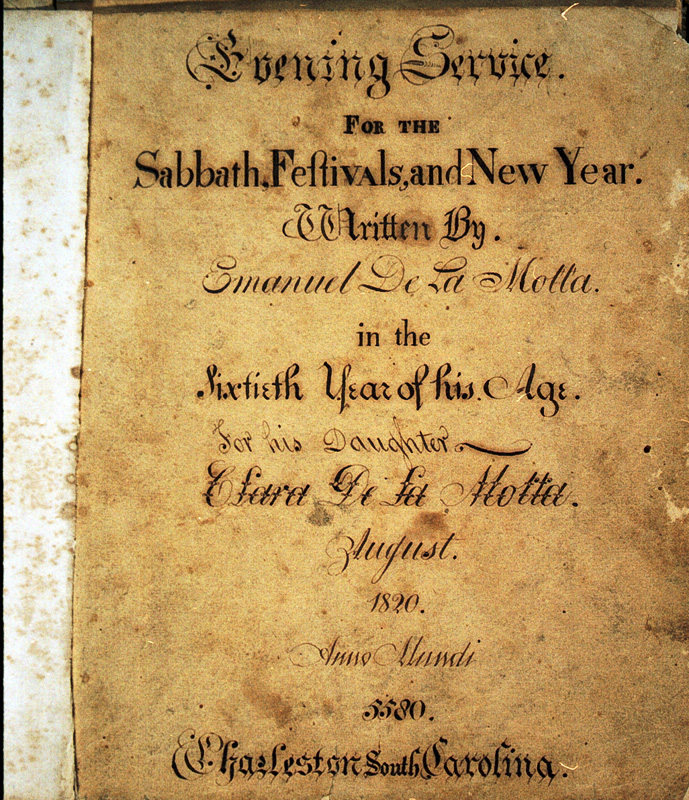 Evening Service.
For the
Sabbath, Feſtivals, and New Year.
Written By.
Emanuel De La Motta.
in the
Sixtieth Year of his Age.
For his Daughter
Clara De La Motta.
August.
1820.
Anno Mundi
5580.
Charleston South Carolina.